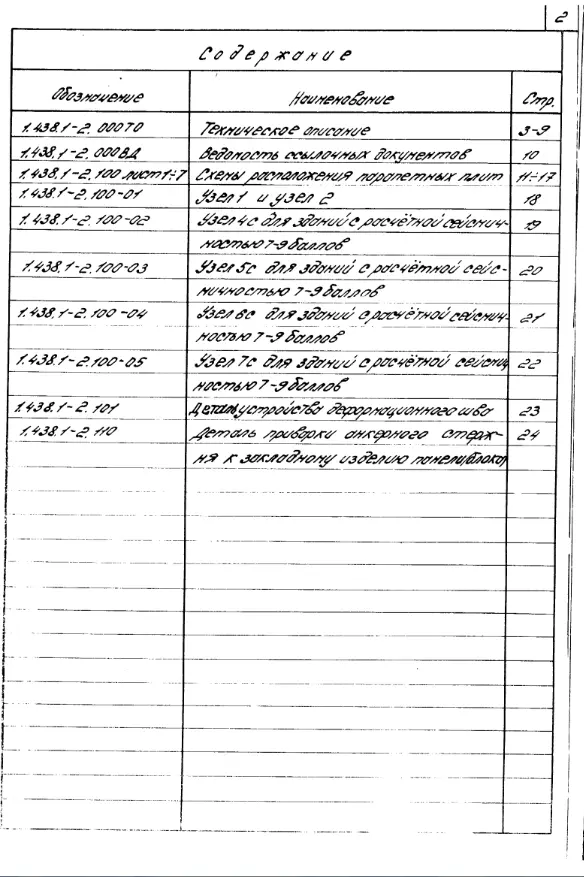 2
Содержание
Обозначение Наименование Стр.
1.438.1-2.000ТО Техническое описание 3-9
1.438.1-2.000ВД Ведомость ссылочных документов 10
1.438.1-2.100 лист 1÷7 Схемы расположения парапетных плит 11÷17
1.438.1-2.100-01 Узел 1 и узел 2 18
1.438.1-2.100-02 Узел 4с для зданий с расчётной сейсмич- 19
ностью 7-9 баллов
1.438.1-2.100-03 Узел 5с для зданий с расчётной сейс- 20
мичностью 7-9 баллов
1.438.1-2.100-04 Узел 6с для зданий с расчётной сейсмич- 21
ностью 7-9 баллов
1.438.1-2.100-05 Узел 7с для зданий с расчётной сейсмич 22
ностью 7-9 баллов
1.438.1-2.101 Деталь устройства деформационного шва 23
1.438.1-2.110 Деталь приварки анкерного стерж- 24
ня к закладному изделию панели(блока)